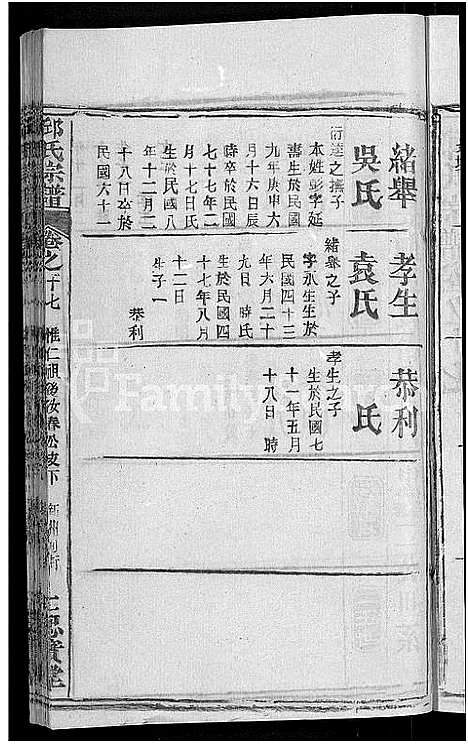 緒舉
吳氏
衍達之撫子
本姓彭字延
壽生於民國
九年庚申六
月十六日辰
時卒於民國
七十七年二
月十七日氏
生於民國八
年十二月二
十八日卒於
民國六十一
孝生
袁氏
緒舉之子
字永生生於
民國四十三
年六月二十
九日 時氏
生於民國四
十七年八月
十二日
生子一
恭利
恭利
氏
孝生之子
生於民國七
十一年五月
十八日 時
邱氏宗譜
卷之十七
惟仁祖後汝春公支下